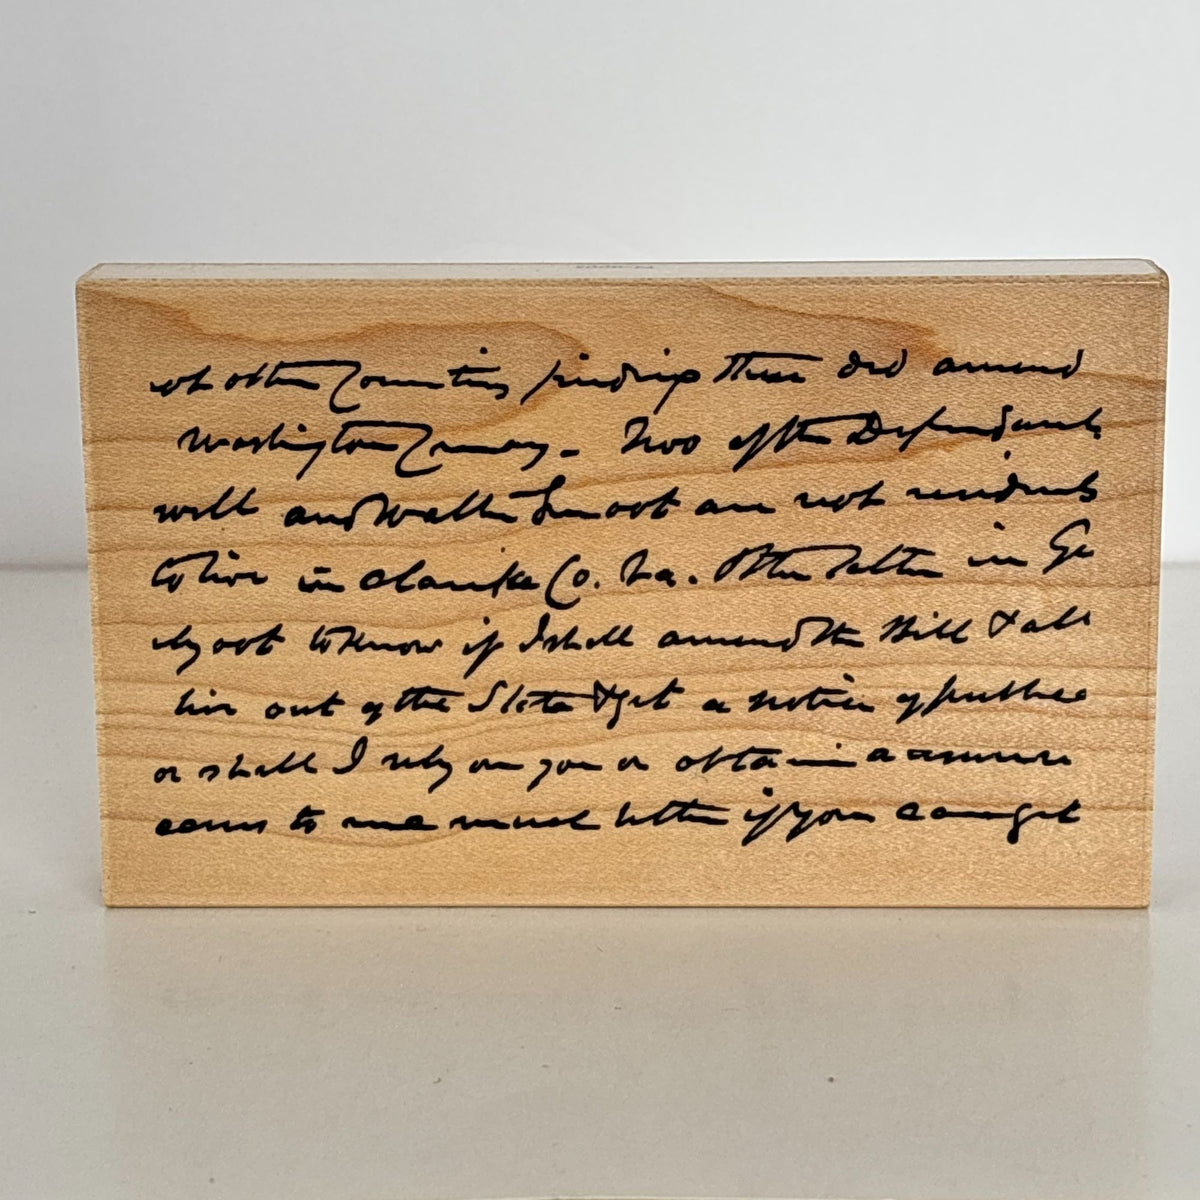 of other Counties finding there did amend
Washington County - Two of the Defendants
will and Walter Smoot are not residents
to live in Clarke Co. Va. & the latter in Ge
ly out to know if I shall amend the Bill & all
live out of the State & get a notice of publice
or shall I rely on you or obtain a
seems to me much better if you can get